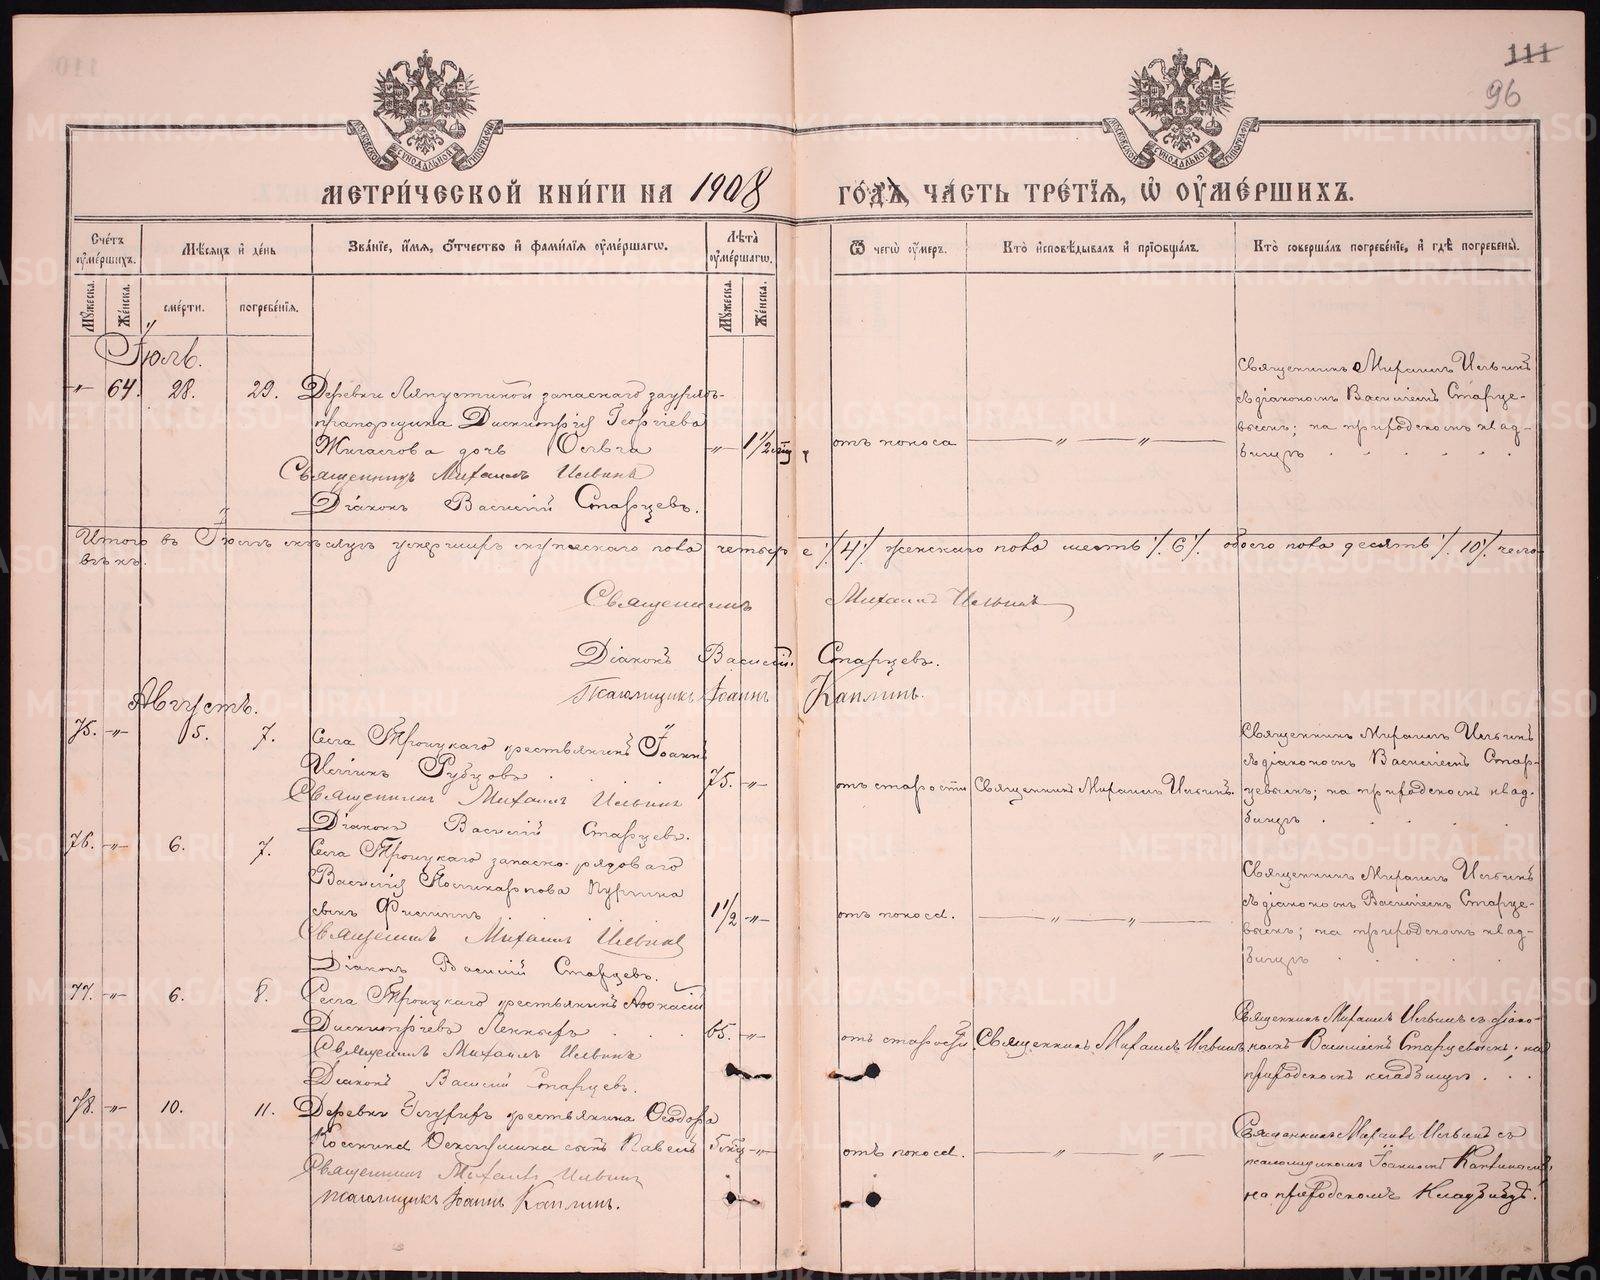 111
96
МОСКОВСКОЙ СѴНОДАЛЬНОЙ ТИПОГРАФІИ
МОСКОВСКОЙ СѴНОДАЛЬНОЙ ТИПОГРАФІИ
МЕТРИ́ЧЕСКОЙ КНИ́ГИ НА 1908 ГО́ДЪ, ЧА́СТЬ ТРЕ́ТЇѦ, Ѡ ОУМЕ́РШИХЪ.
Сче́тъ оуме́ршихъ.
Мѣ́сяцъ и де́нь
Зва́нїе, и́мѧ, о́тчество и фами́лїѧ оуме́ршагѡ.
Лѣ́та оуме́ршагѡ.
Ѿ чегѡ̀ оу́меръ.
Кто̀ исповѣ́дывалъ и прїобща́лъ.
Кто̀ соверша́лъ погребе́нїе, и гдѣ̀ погребены̀.
Мꙋ́жеска.
Же́нска.
сме́рти.
погребе́нїѧ.
Мꙋ́жеска.
Же́нска.
Іюль.
-"- 64. 28. 29. Деревни Ляпустиной запаснаго заурядъ-
прапорщика Димитрія Георгіева
дочь Ольга -"- 1½
Священникъ Михаилъ Ильинъ
Діаконъ Василій Старцевъ.
отъ поноса — " — " —
Священникъ Михаилъ Ильинъ
съ діакономъ Василіемъ Старце-
вымъ; на приходскомъ клад-
бищѣ . . . . . .
Итого въ Іюлѣ мѣсяцѣ умершихъ мужескаго пола четыре /.4/. женскаго пола шесть /.6/. обоего пола десять /.10/. чело-
вѣкъ.
Священникъ Михаилъ Ильинъ
Діаконъ Василій Старцевъ.
Псаломщикъ Іоаннъ Каплинъ.
Августъ.
75. -"- 5. 7. Села Троицкаго крестьянинъ Іоаннъ
Рубцовъ 75. -"-
Священникъ Михаилъ Ильинъ
Діаконъ Василій Старцевъ.
отъ старости Священникъ Михаилъ Ильинъ.
Священникъ Михаилъ Ильинъ
съ діакономъ Василіемъ Стар-
цевымъ; на приходскомъ клад-
бищѣ . . . .
76. -"- 6. 7. Села Троицкаго запасно-рядоваго
Василія Поликарпова
сынъ Филиппъ 1½ -"-
Священникъ Михаилъ Ильинъ
Діаконъ Василій Старцевъ.
отъ поноса. — " — " —
Священникъ Михаилъ Ильинъ
съ діакономъ Василіемъ Старце-
вымъ; на приходскомъ клад-
бищѣ . . . .
77. -"- 6. 8. Села Троицкаго крестьянинъ Аѳанасій
Димитріевъ 65. -"-
Священникъ Михаилъ Ильинъ
Діаконъ Василій Старцевъ.
отъ старости. Священникъ Михаилъ Ильинъ
Священникъ Михаилъ Ильинъ съ діако-
номъ Василіемъ Старцевымъ; на
приходскомъ кладбищѣ . . .
78. -"- 10. 11. Деревни крестьянина Ѳеодора
сынъ Павелъ -"-
Священникъ Михаилъ Ильинъ
Псаломщикъ Іоаннъ Каплинъ.
отъ поноса. — " — " —
Священникъ Михаилъ Ильинъ съ
псаломщикомъ Іоанномъ Каплинымъ;
на приходскомъ кладбищѣ.